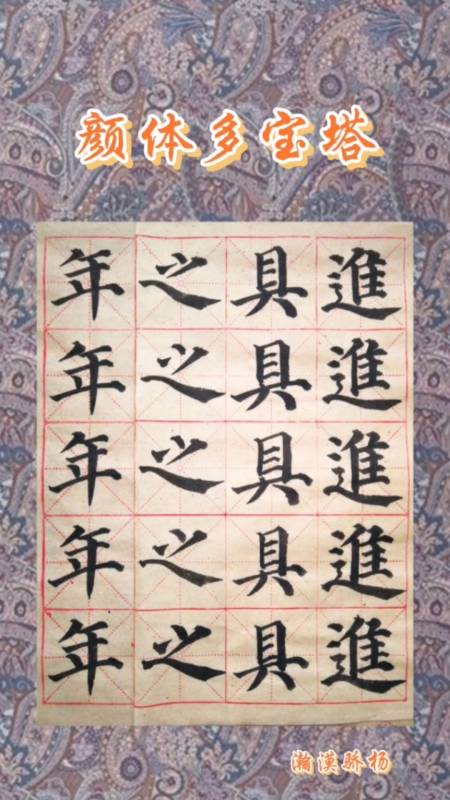 颜体多宝塔
進進進進進
具具具具具
之之之之之
年年年年年
瀚漠骄杨